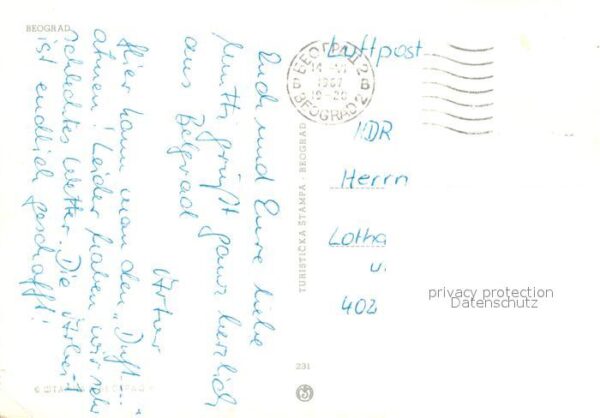 BEOGRAD
Euch und Eure liebe
Mutti grüßt ganz herzlich
aus Belgrad
Artur
Hier kann man den "Duft...."
atmen! Leider haben wir sehr
schlechtes Wetter. Die Arbeit
ist endlich geschafft!
TURISTIČKA ŠTAMPA - BEOGRAD
231
БЕОГРАД 2
1967
BEOGRAD 2
Luftpost
DDR
Herrn
Lotha
u.
402
privacy protection
Datenschutz